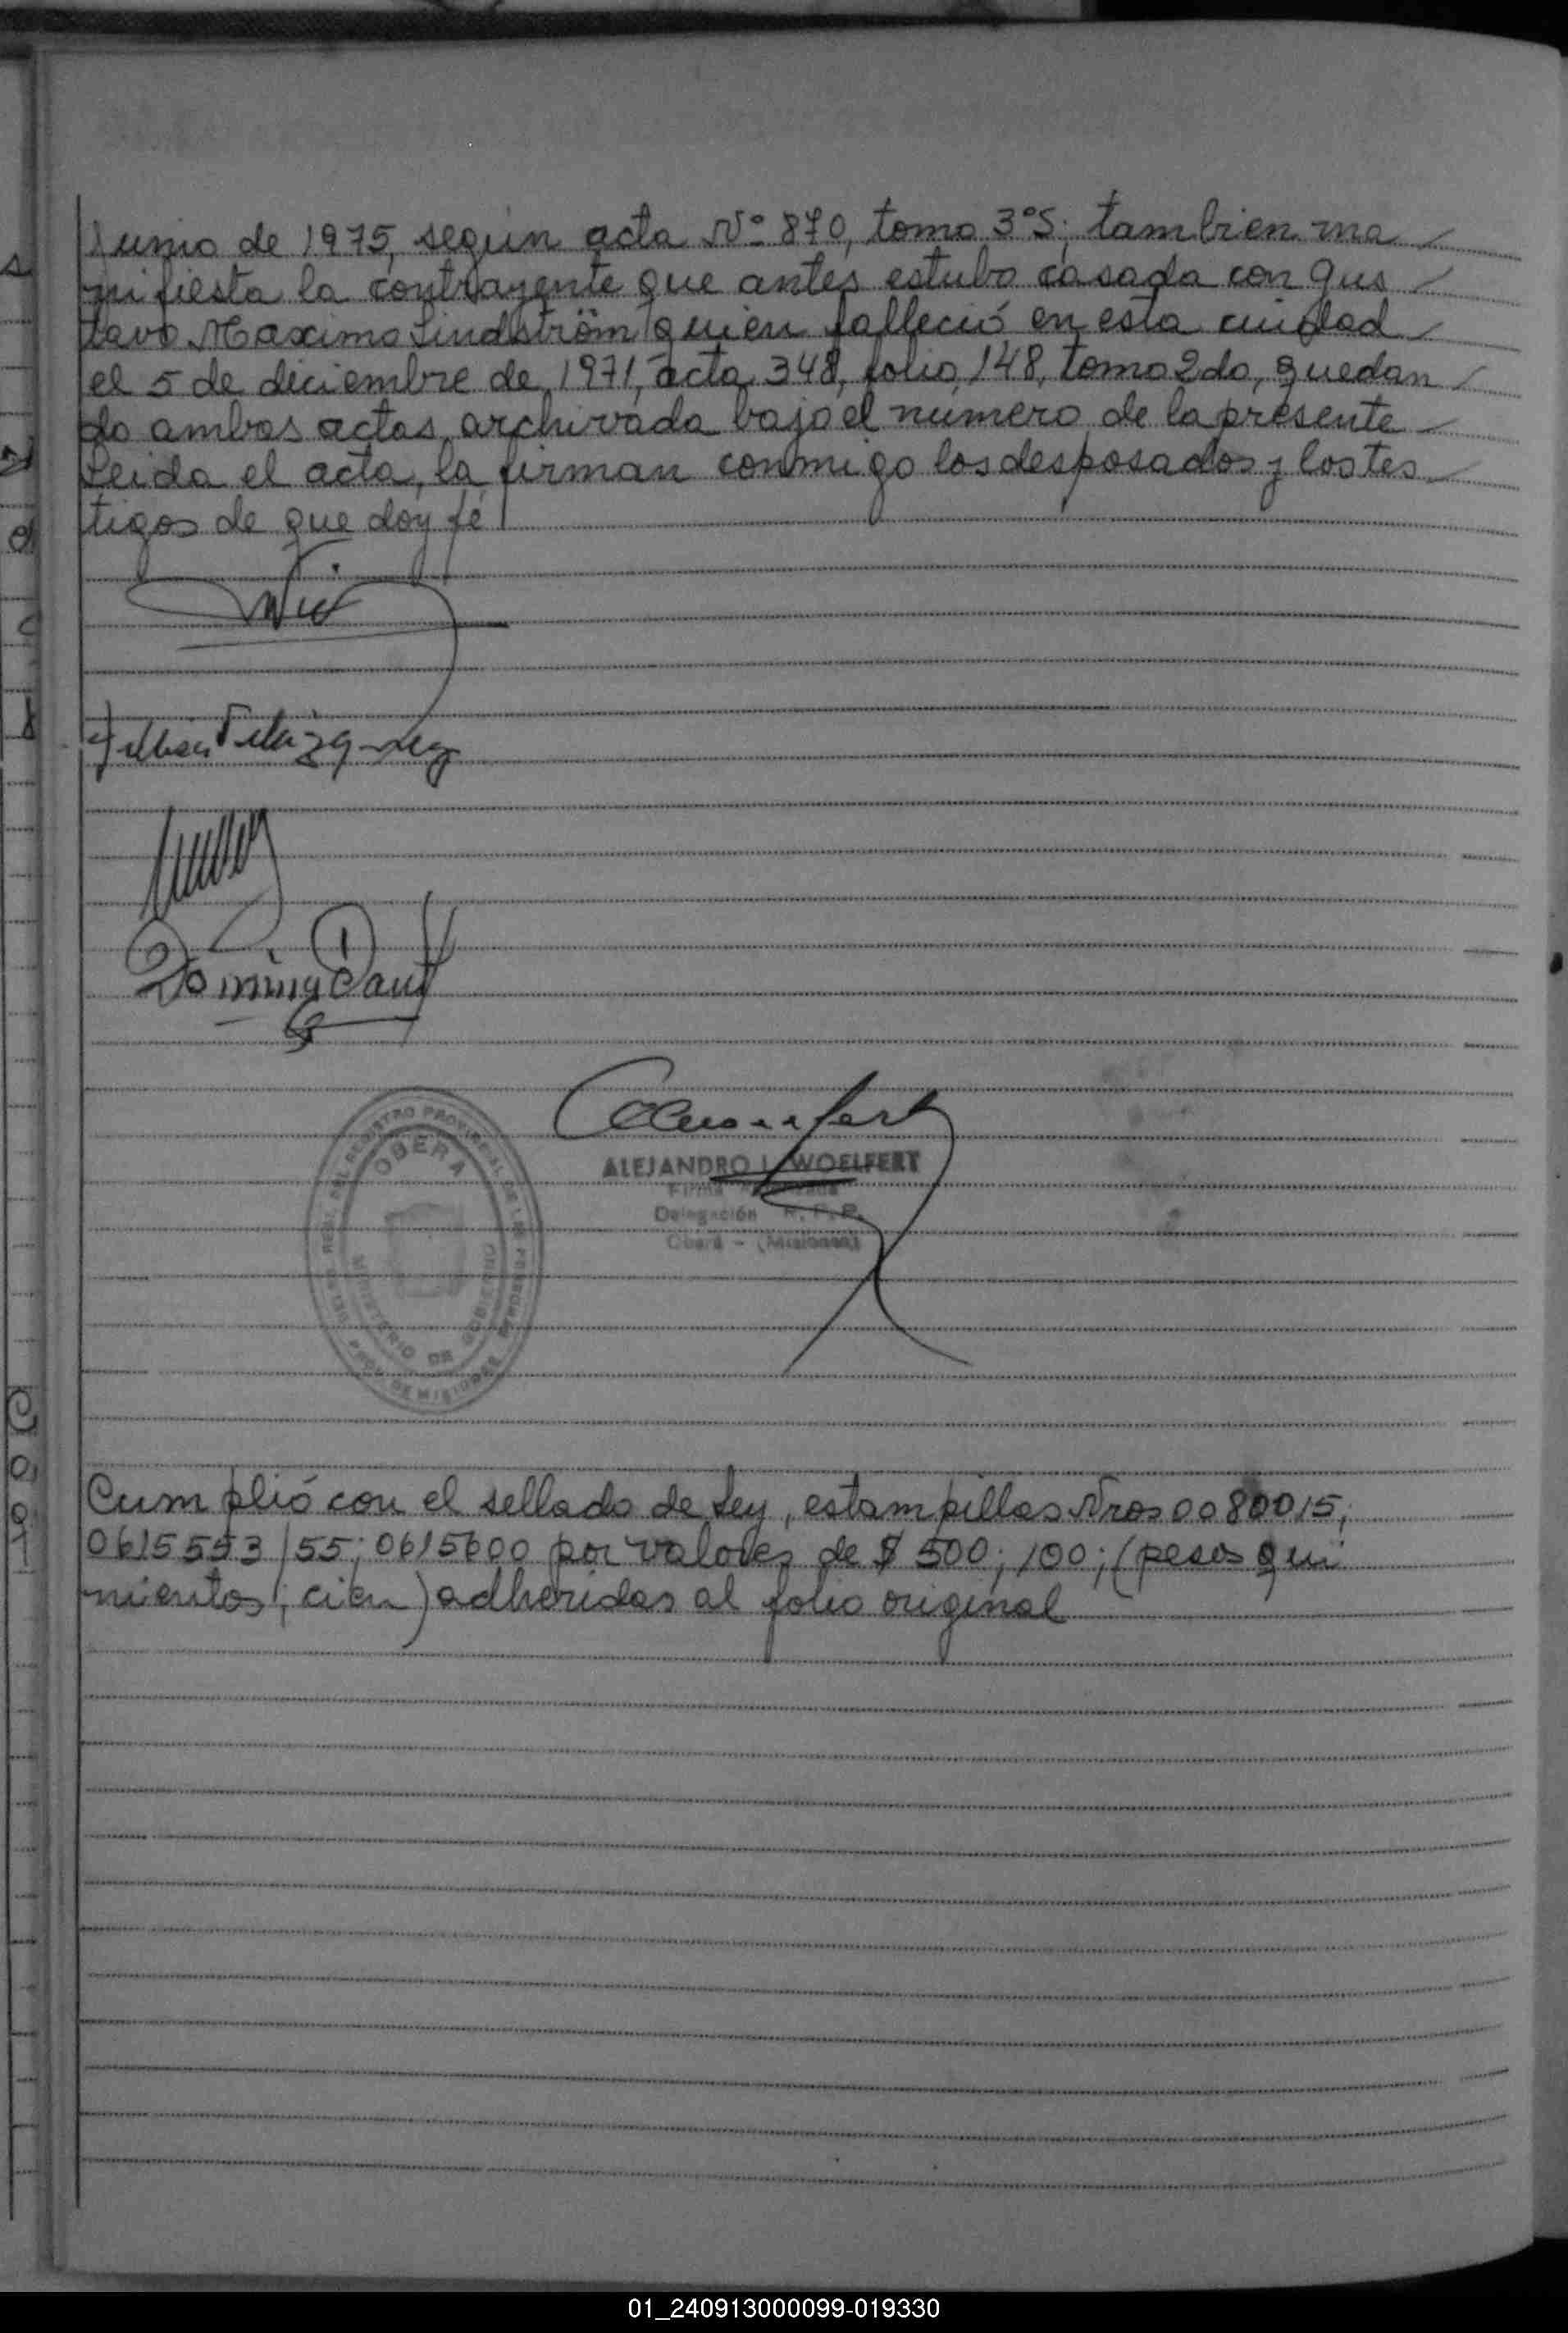 Junio de 1975, según acta Nº 870, tomo 3ºS; tambien ma
nifiesta la contrayente que antes estubo casada con Gus
tavo Maximo Lindström quien falleció en esta ciudad
el 5 de diciembre de 1971, acta 348, folio 148, tomo 2do, quedan
do ambas actas archivada bajo el número de la presente
Leida el acta, la firman conmigo los desposados y los tes
tigos de que doy fé
OBERA
MINISTERIO DE GOBIERNO
PROV. DE MISIONES
ALEJANDRO L. WOELFERT
Firma
Delegación R.P.P.
Oberá - (Misiones)
Cumplió con el sellado de Ley, estampillas Nros 0080015;
0615553/55; 0615600 por valores de $ 500; 100; (pesos qui
nientos; cien) adheridas al folio original
01_240913000099-019330